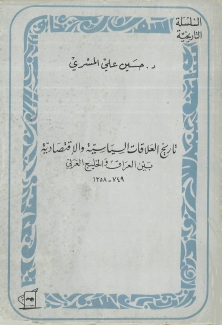 السلسلة
التاريخية
د. حسين علي المسري
تاريخ العلاقات السياسية والاقتصادية
بين العراق والخليج العربي
٧٤٩ - ١٢٥٨